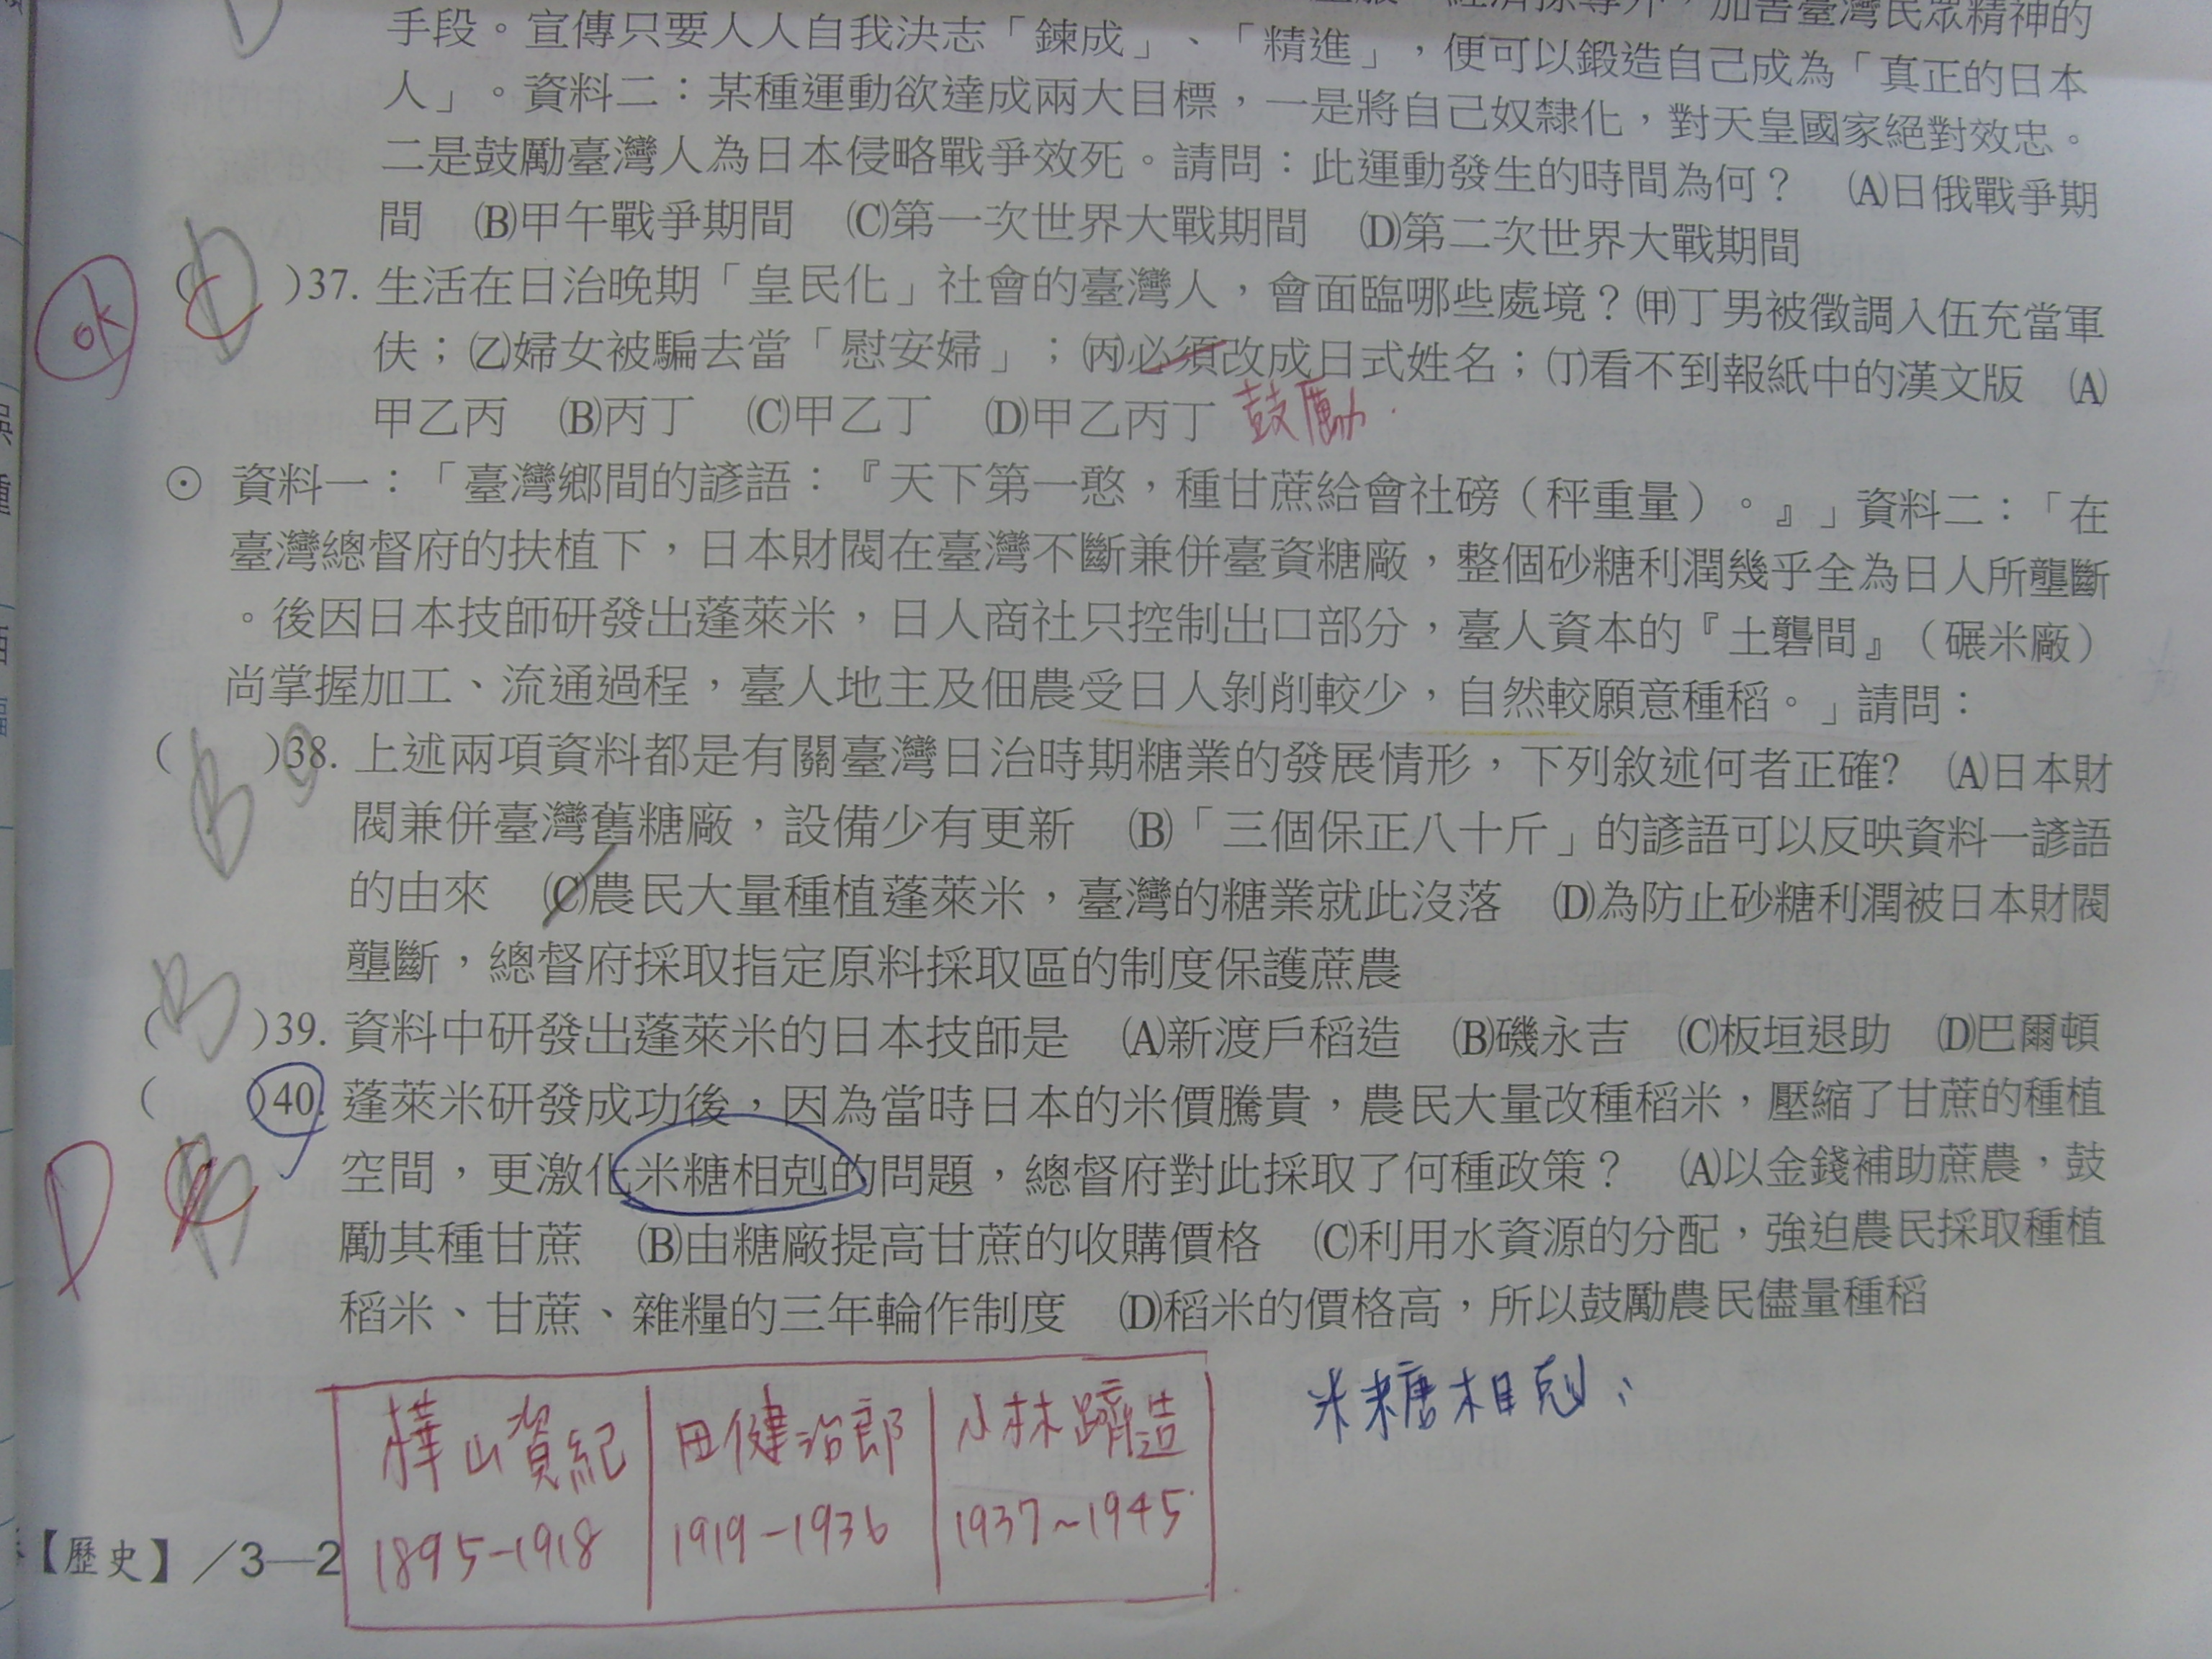 手段。宣傳只要人人自我決志「鍊成」、「精進」，便可以鍛造自己成為「真正的日本
人」。資料二：某種運動欲達成兩大目標，一是將自己奴隸化，對天皇國家絕對效忠。
二是鼓勵臺灣人為日本侵略戰爭效死。請問：此運動發生的時間為何？　(A)日俄戰爭期
間　(B)甲午戰爭期間　(C)第一次世界大戰期間　(D)第二次世界大戰期間
ok
C
(　)37. 生活在日治晚期「皇民化」社會的臺灣人，會面臨哪些處境？(甲)丁男被徵調入伍充當軍
伕；(乙)婦女被騙去當「慰安婦」；(丙)必須改成日式姓名；(丁)看不到報紙中的漢文版　(A)
甲乙丙　(B)丙丁　(C)甲乙丁　(D)甲乙丙丁 鼓勵
⊙ 資料一：「臺灣鄉間的諺語：『天下第一憨，種甘蔗給會社磅（秤重量）。』」資料二：「在
臺灣總督府的扶植下，日本財閥在臺灣不斷兼併臺資糖廠，整個砂糖利潤幾乎全為日人所壟斷
。後因日本技師研發出蓬萊米，日人商社只控制出口部分，臺人資本的『土礱間』（碾米廠）
尚掌握加工、流通過程，臺人地主及佃農受日人剝削較少，自然較願意種稻。」請問：
B
(　)38. 上述兩項資料都是有關臺灣日治時期糖業的發展情形，下列敘述何者正確?　(A)日本財
閥兼併臺灣舊糖廠，設備少有更新　(B)「三個保正八十斤」的諺語可以反映資料一諺語
的由來　(C)農民大量種植蓬萊米，臺灣的糖業就此沒落　(D)為防止砂糖利潤被日本財閥
壟斷，總督府採取指定原料採取區的制度保護蔗農
B
(　)39. 資料中研發出蓬萊米的日本技師是　(A)新渡戶稻造　(B)磯永吉　(C)板垣退助　(D)巴爾頓
(　)40. 蓬萊米研發成功後，因為當時日本的米價騰貴，農民大量改種稻米，壓縮了甘蔗的種植
空間，更激化米糖相剋的問題，總督府對此採取了何種政策？　(A)以金錢補助蔗農，鼓
勵其種甘蔗　(B)由糖廠提高甘蔗的收購價格　(C)利用水資源的分配，強迫農民採取種植
稻米、甘蔗、雜糧的三年輪作制度　(D)稻米的價格高，所以鼓勵農民儘量種稻
D
C
樺山資紀 田健治郎 小林躋造
1895-1918 1919-1936 1937~1945
米糖相剋：
【歷史】／3—2